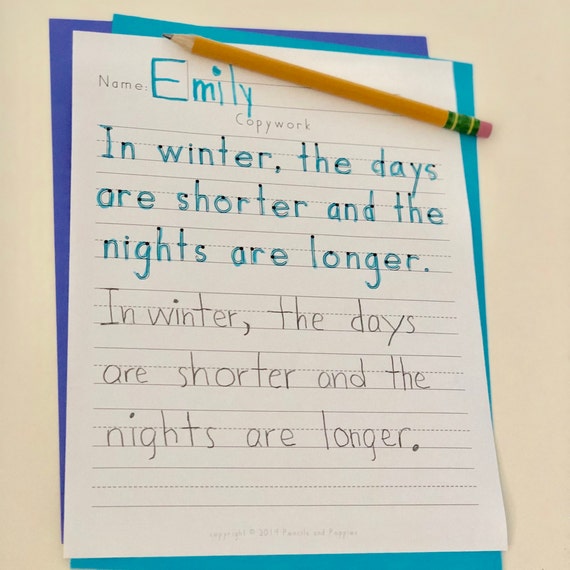 Name: Emily
Copywork
In winter, the days
are shorter and the
nights are longer.
In winter, the days
are shorter and the
nights are longer.
copyright © 2019 Pencils and Poppies